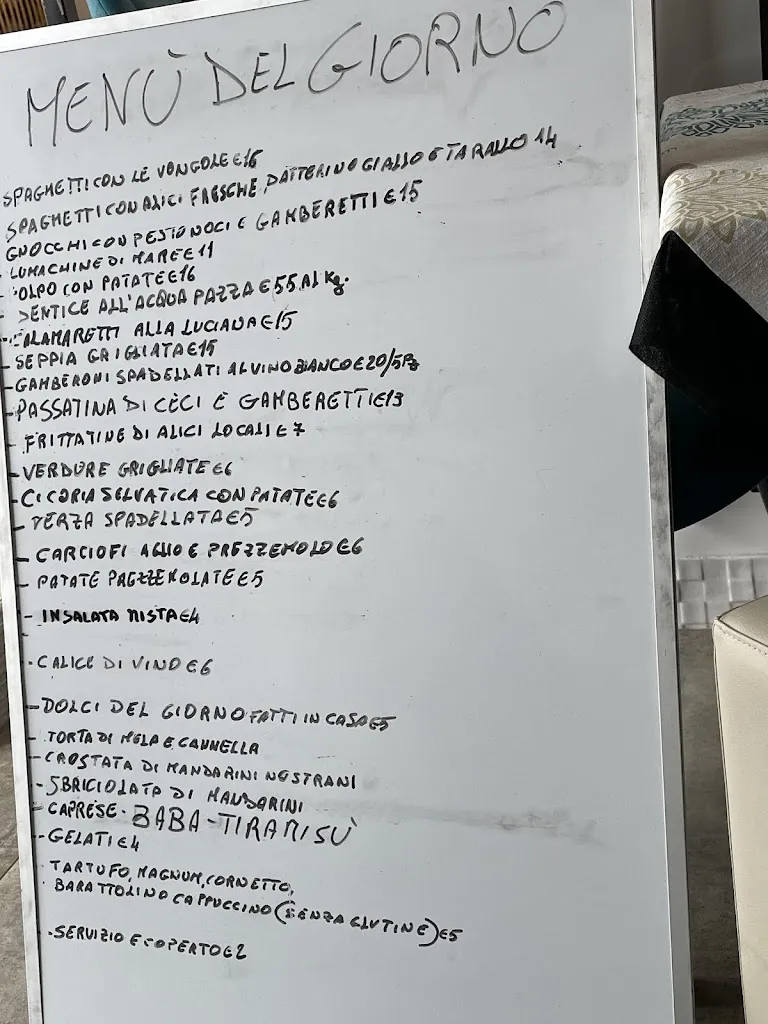 MENÙ DEL GIORNO
SPAGHETTI CON LE VONGOLE €16
SPAGHETTI CON ALICI FRESCHE, DATTERINO GIALLO E TARALLO 14
GNOCCHI CON PESTO NOCI E GAMBERETTI €15
LUMACHINE DI MARE €11
POLPO CON PATATE €16
DENTICE ALL'ACQUA PAZZA €55 AL Kg.
- CALAMARETTI ALLA LUCIANA €15
- SEPPIA GRIGLIATA €15
- GAMBERONI SPADELLATI AL VINO BIANCO €20/5Pz
- PASSATINA DI CECI E GAMBERETTI €13
- FRITTATINE DI ALICI LOCALI €7
- VERDURE GRIGLIATE €6
- CICORIA SELVATICA CON PATATE €6
- VERZA SPADELLATA €5
- CARCIOFI AGLIO E PREZZEMOLO €6
- PATATE PREZZEMOLATE €5
- INSALATA MISTA €4
- CALICE DI VINO €6
- DOLCI DEL GIORNO FATTI IN CASA €5
- TORTA DI MELA E CANNELLA
- CROSTATA DI MANDARINI NOSTRANI
- SBRICIOLATA DI MANDARINI
- CAPRESE - BABA - TIRAMISÙ
- GELATI €4
TARTUFO, MAGNUM, CORNETTO,
BARATTOLINO CAPPUCCINO (SENZA GLUTINE) €5
- SERVIZIO E COPERTO €2